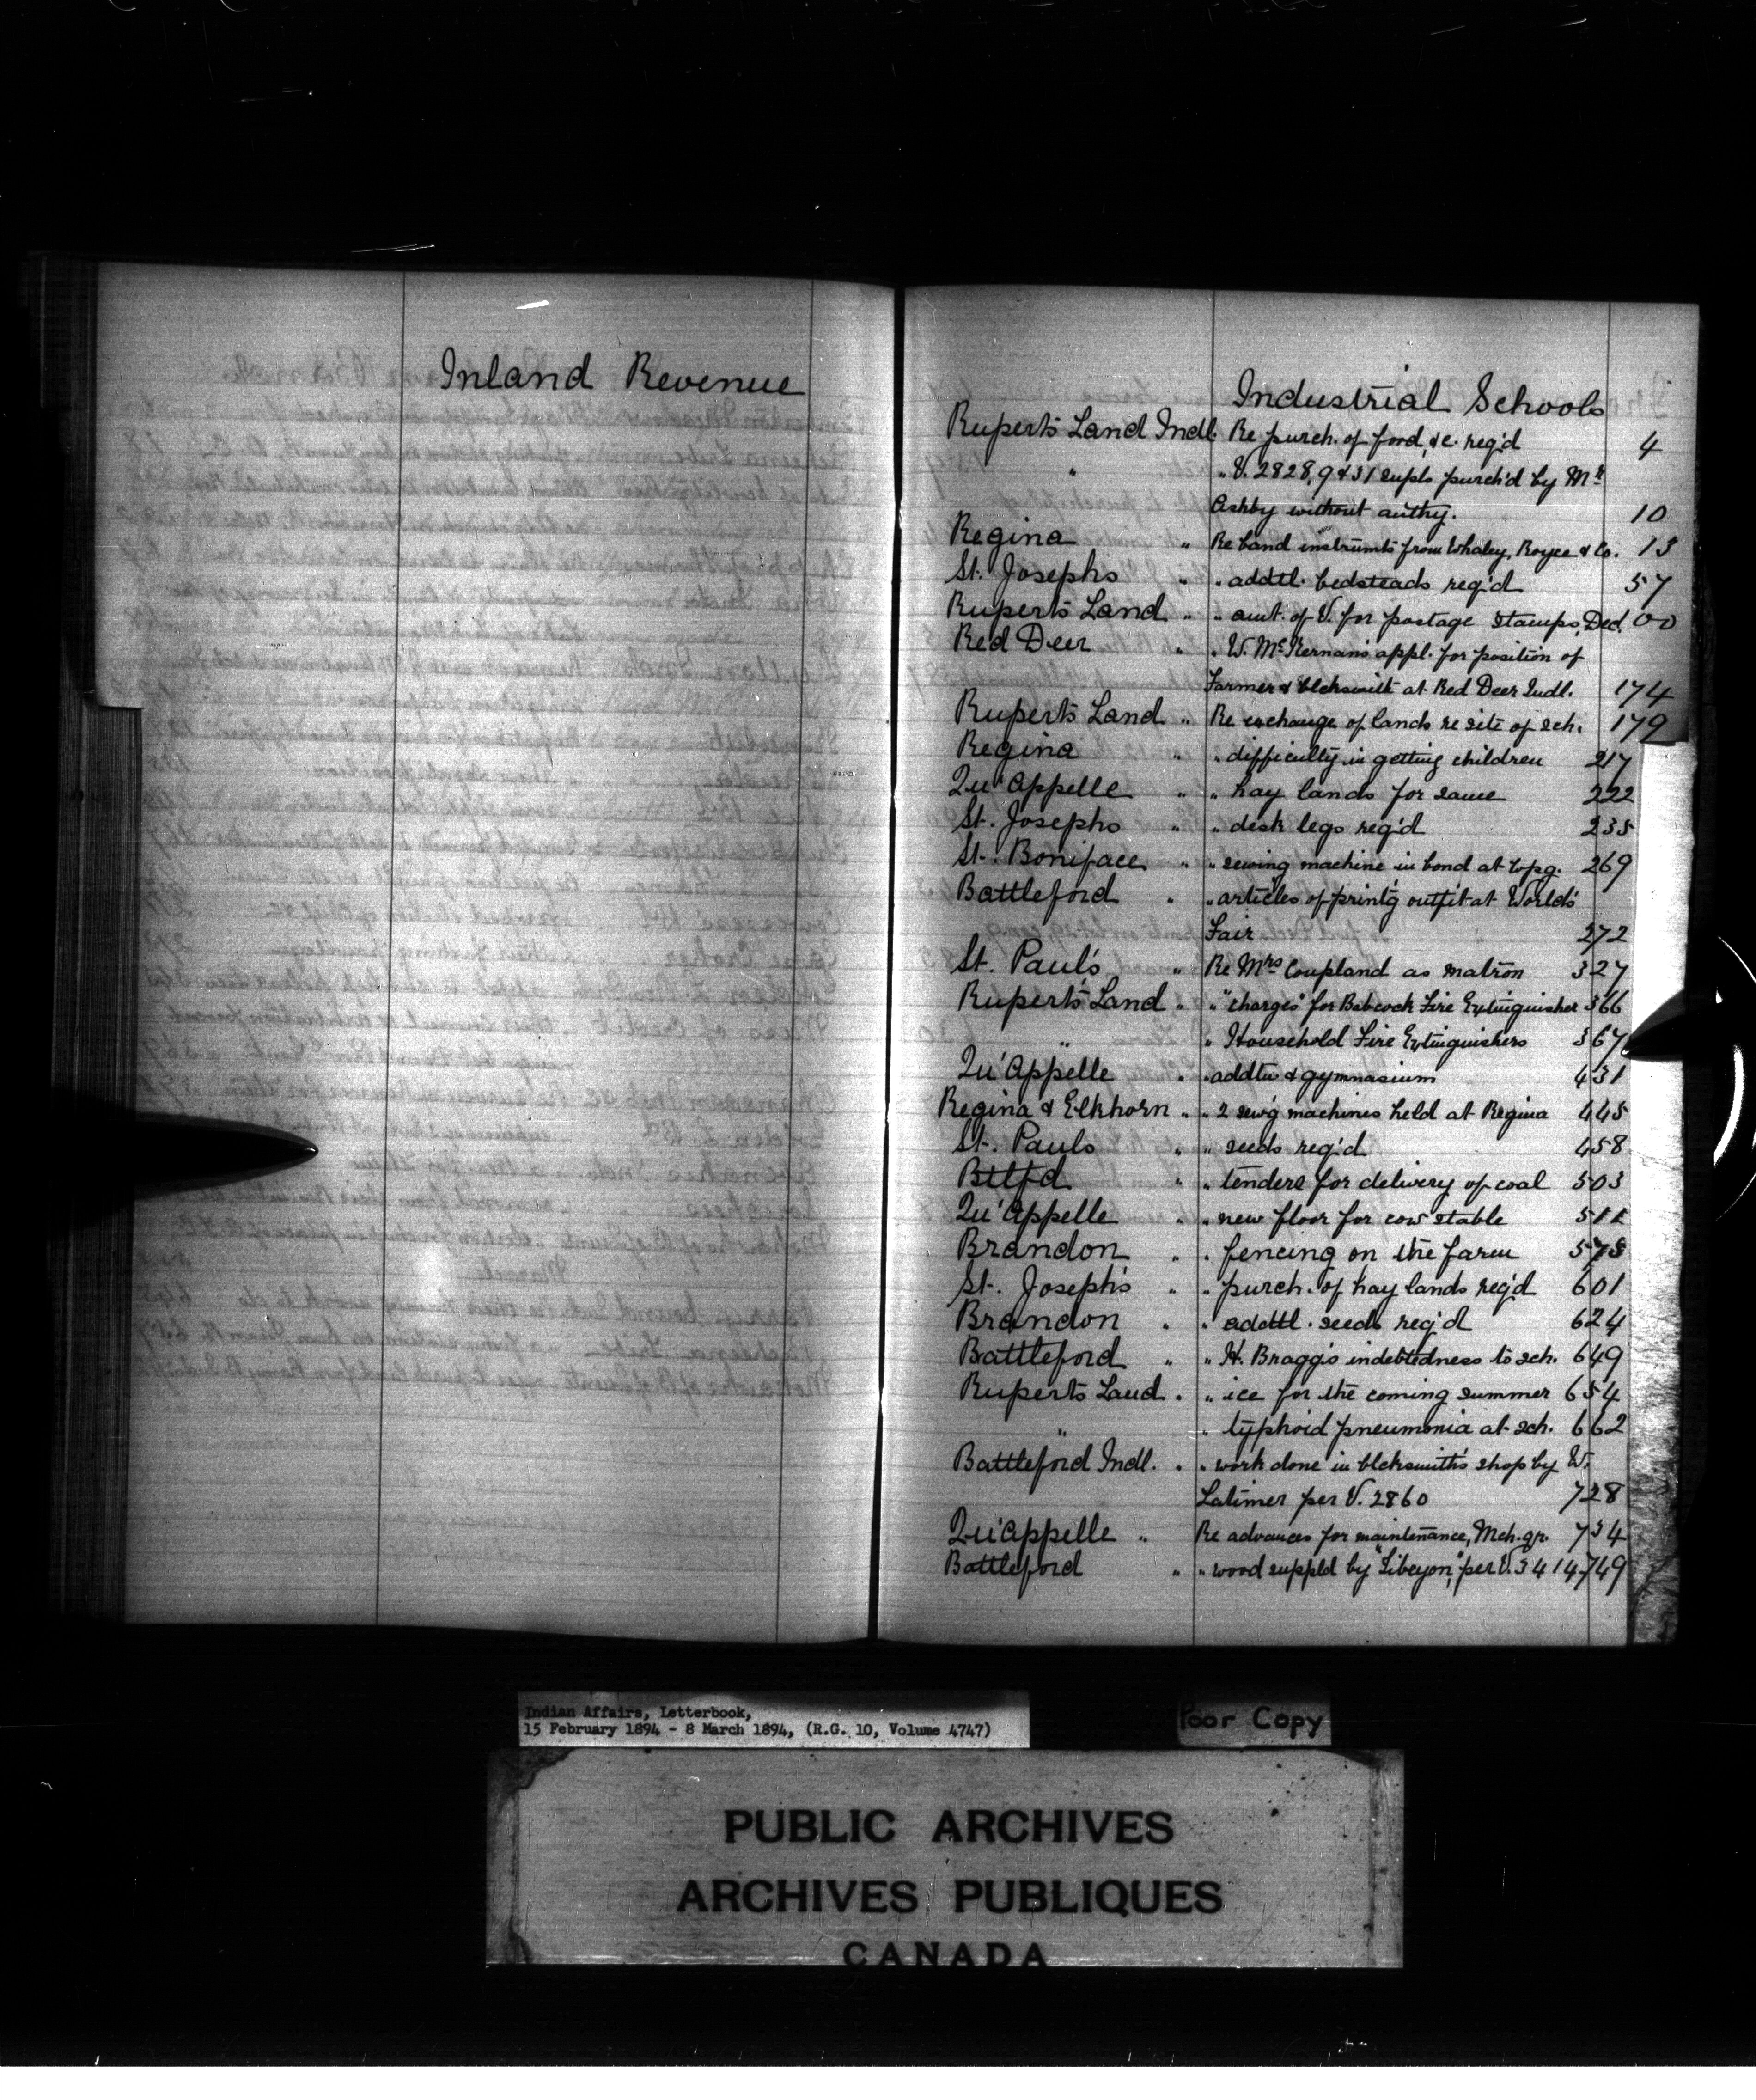 Inland Revenue
Industrial Schools
Rupert's Land Indl. Re purch. of food, &c. req'd 4
" " V. 2828, 9 & 31 supls purch'd by Mr
Ashby without authy. 10
Regina " Re band instrumts from Whaley, Royce & Co. 13
St. Joseph's " " addtl. bedsteads req'd 57
Rupert's Land " " amt. of V. for postage stamps, Dec.
Red Deer " " W. McKernan's appl. for position of
Farmer & blcksmith at Red Deer Indl. 174
Rupert's Land " Re exchange of lands re site of sch. 179
Regina " " difficulty in getting children 217
Qu'Appelle " " hay lands for same 222
St. Joseph's " " desk legs req'd 235
St. Boniface " " sewing machine in bond at Wpg. 269
Battleford " " articles of print'g outfit at World's
Fair 272
St. Paul's " Re Mrs Coupland as matron 327
Rupert's Land " " "charges" for Babcock Fire Extinguisher 366
" " Household Fire Extinguishers 367
Qu'Appelle " " addtn & gymnasium 431
Regina & Elkhorn " " 2 sew'g machines held at Regina 445
St. Pauls " " seeds req'd 458
Btlfd " " tenders for delivery of coal 503
Qu'Appelle " " new floor for cow stable 511
Brandon " " fencing on the farm
St. Joseph's " " purch. of hay lands req'd 601
Brandon " " addtl. seeds req'd 624
Battleford " " H. Bragg's indebtedness to sch. 649
Rupert's Land " " ice for the coming summer 654
" " typhoid pneumonia at sch. 662
Battleford Indl. " " work done in blcksmith's shop by W.
Latimer per V. 2860 728
Qu'Appelle " Re advances for maintenance, Mch. qr. 734
Battleford " " wood suppld by per V. 3414 749
Indian Affairs, Letterbook,
15 February 1894 - 8 March 1894, (R.G. 10, Volume 4747)
Poor Copy
PUBLIC ARCHIVES
ARCHIVES PUBLIQUES
CANADA